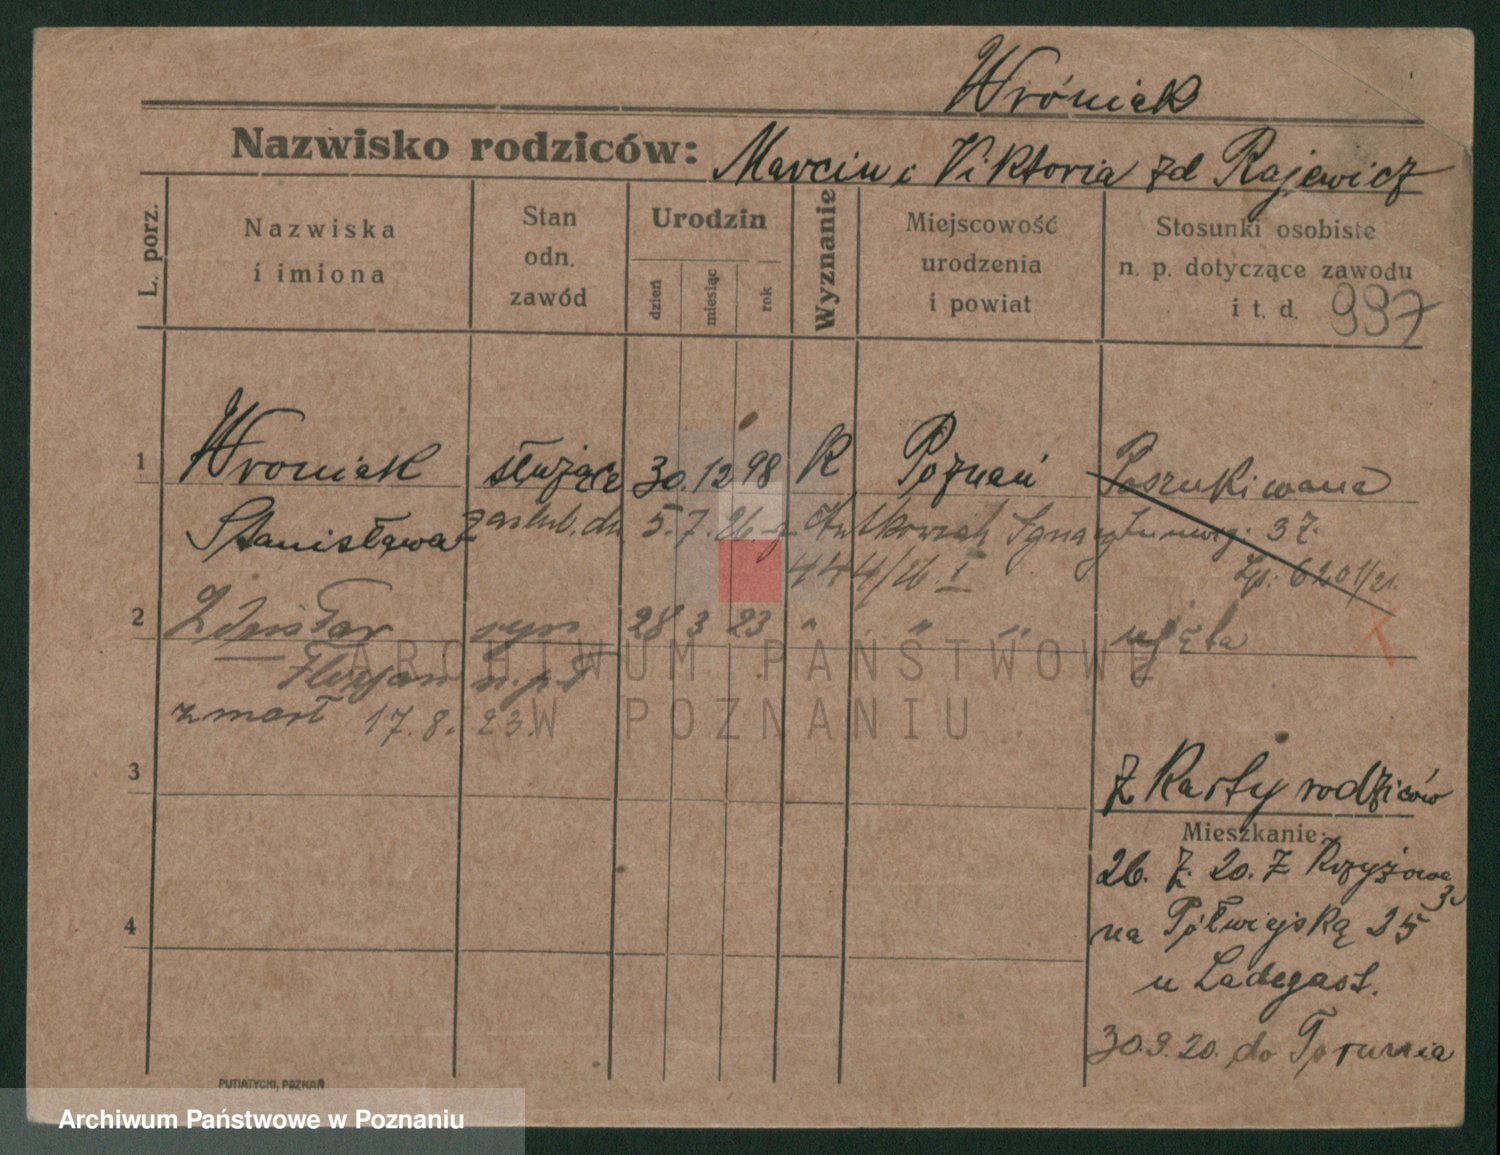 Wróniak
Nazwisko rodziców: Marcin i Viktoria zd Rajewicz
L. porz.
Nazwiska
i imiona
Stan
odn.
zawód
Urodzin
dzień
miesiąc
rok
Wyznanie
Miejscowość
urodzenia
i powiat
Stosunki osobiste
n. p. dotyczące zawodu
i t. d. 997
1 Wroniak służąca 30. 12 98 K Poznań Poszukiwana
Stanisława zaślub. dn 5. 7. 26 z Ignacym 37.
444/26 I Lp: 6201/21.
2 Zdzisław syn 28 3 23 " " " ujęta
Florjan
zmarł 17. 8. 23.
ARCHIWUM PAŃSTWOWE
W POZNANIU
3 z Karty rodziców
Mieszkanie:
26. 7. 20. z Krzyżowa
na Półwiejską 25
4
u Ladegast.
30.9.20. do Torunia
PUTIATYCKI, POZNAŃ
Archiwum Państwowe w Poznaniu